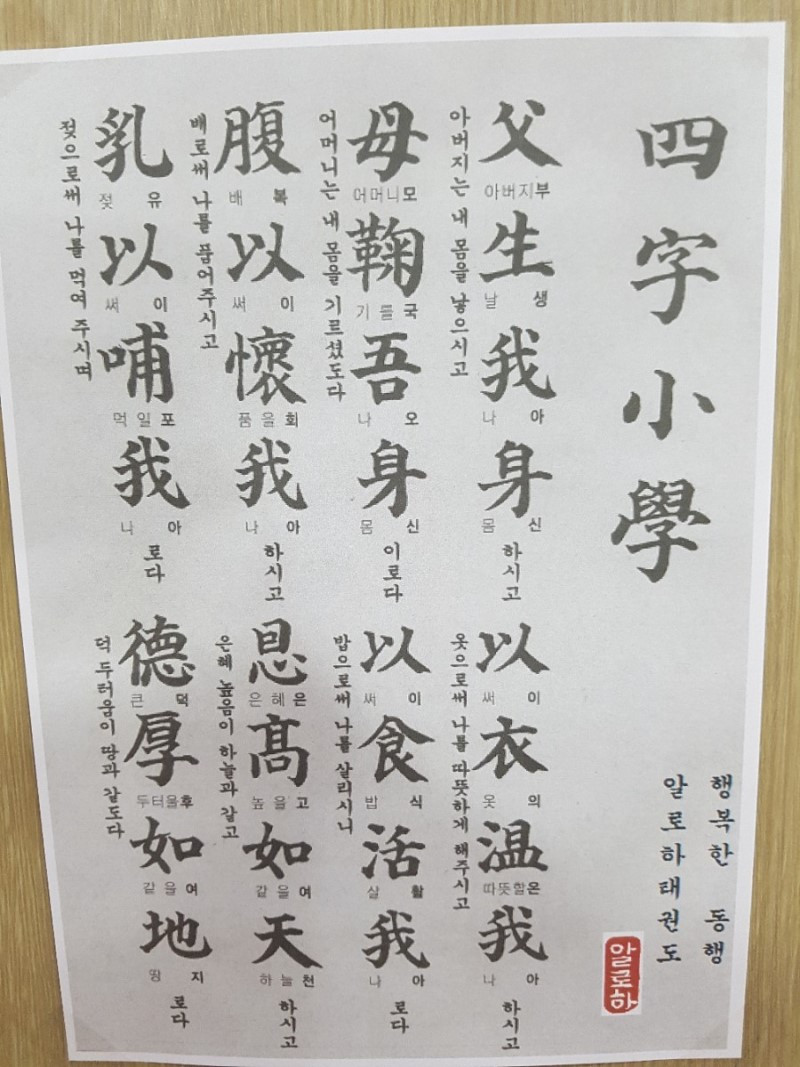 四字小學
行복한 동행
알로하태권도
알로하
父生我身 하시고
아버지부
날 생
나 아
몸 신
아버지는 내 몸을 낳으시고
母鞠吾身 이로다
어머니모
기를국
나 오
몸 신
어머니는 내 몸을 기르셨도다
腹以懷我 하시고
배 복
써 이
품을회
나 아
배로써 나를 품어주시고
乳以哺我 로다
젖 유
써 이
먹일포
나 아
젖으로써 나를 먹여 주시며
以衣温我 하시고
써 이
옷 의
따뜻할온
나 아
옷으로써 나를 따뜻하게 해주시고
以食活我 로다
써 이
밥 식
살 활
나 아
밥으로써 나를 살리시니
恩髙如天 하시고
은혜은
높을고
같을여
하늘천
은혜 높음이 하늘과 같고
德厚如地 로다
큰 덕
두터울후
같을여
땅 지
덕 두터움이 땅과 같도다